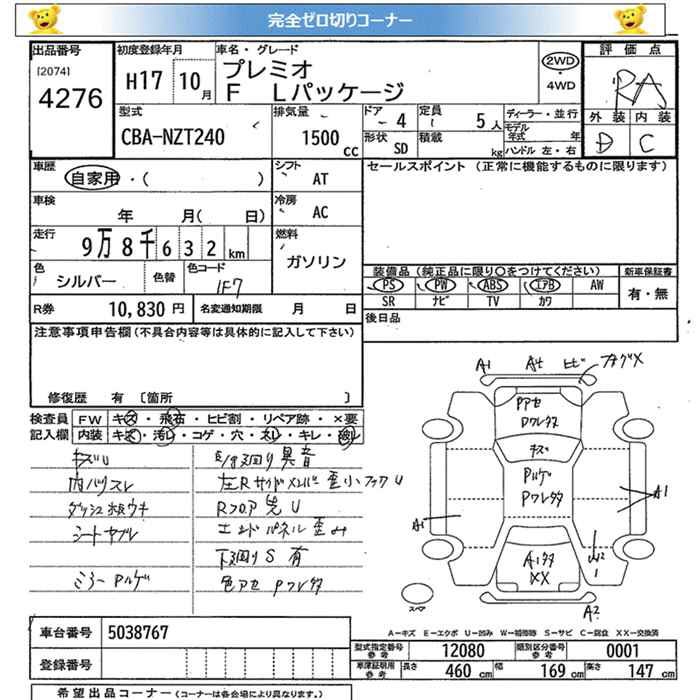 完全ゼロ切りコーナー
出品番号 初度登録年月 車名・グレード 評価点
[2074] 4276
H17 10月 プレミオ
F Lパッケージ
2WD・4WD
RA
外装 内装
D C
型式 CBA-NZT240
排気量 1500 cc
ドア 4 定員 5人
形状 SD 積載 kg
ディーラー・並行
モデル年式 年
ハンドル 左・右
車歴 自家用・( )
シフト AT
セールスポイント (正常に機能するものに限ります)
車検 年 月( 日)
冷房 AC
走行 9万8千632km
燃料 ガソリン
色 シルバー 色替 色コード 1F7
装備品 (純正品に限り○をつけてください) 新車保証書
PS PW ABS エアB AW 有・無
SR ナビ TV カワ
R券 10,830円 名変通知期限 月 日
後日品
注意事項申告欄 (不具合内容等は具体的に記入して下さい)
修復歴 有 [箇所 ]
検査員 FW キズ・飛石・ヒビ割・リペア跡・×要
記入欄 内装 キズ・汚レ・コゲ・穴・スレ・キレ・破レ
キズU
内ハリスレ
ダッシュホルウキ
シートヤブレ
ミラーPハゲ
異音
左Rサイドメンバー歪小
RフロアU
エンドパネル歪ミ
下廻りS有
色アセPワレタタ
A1 A4 ヒビ
Pアセ
Pワレタタ
キズ
Pハゲ
Pワレタタ
A1 A1
XX
A2
スペア
A―キズ E―エクボ U―凹み W―補修跡 S―サビ C―腐食 XX―交換済
車台番号 5038767
登録番号
型式指定番号 参考 12080 類別区分番号 参考 0001
車庫証明用 参考 長さ 460cm 幅 169cm 高さ 147cm
希望出品コーナー (コーナーは各会場により異なります。)